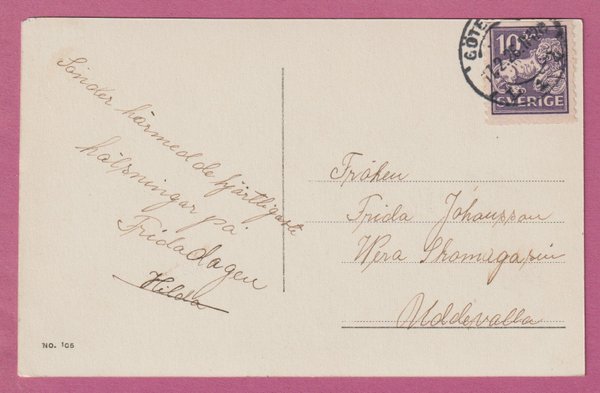 Sänder härmed de hjärtligaste
hälsningar på
Fridadagen
Hilda
NO. 105
GÖTE
10
SVERIGE
Fröken
Frida Johansson
Wera Skomagasin
Uddevalla